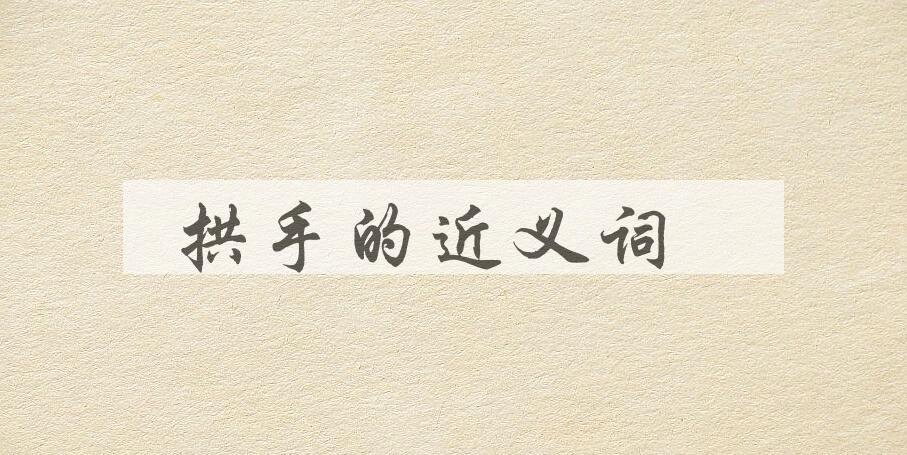 拱手的近义词